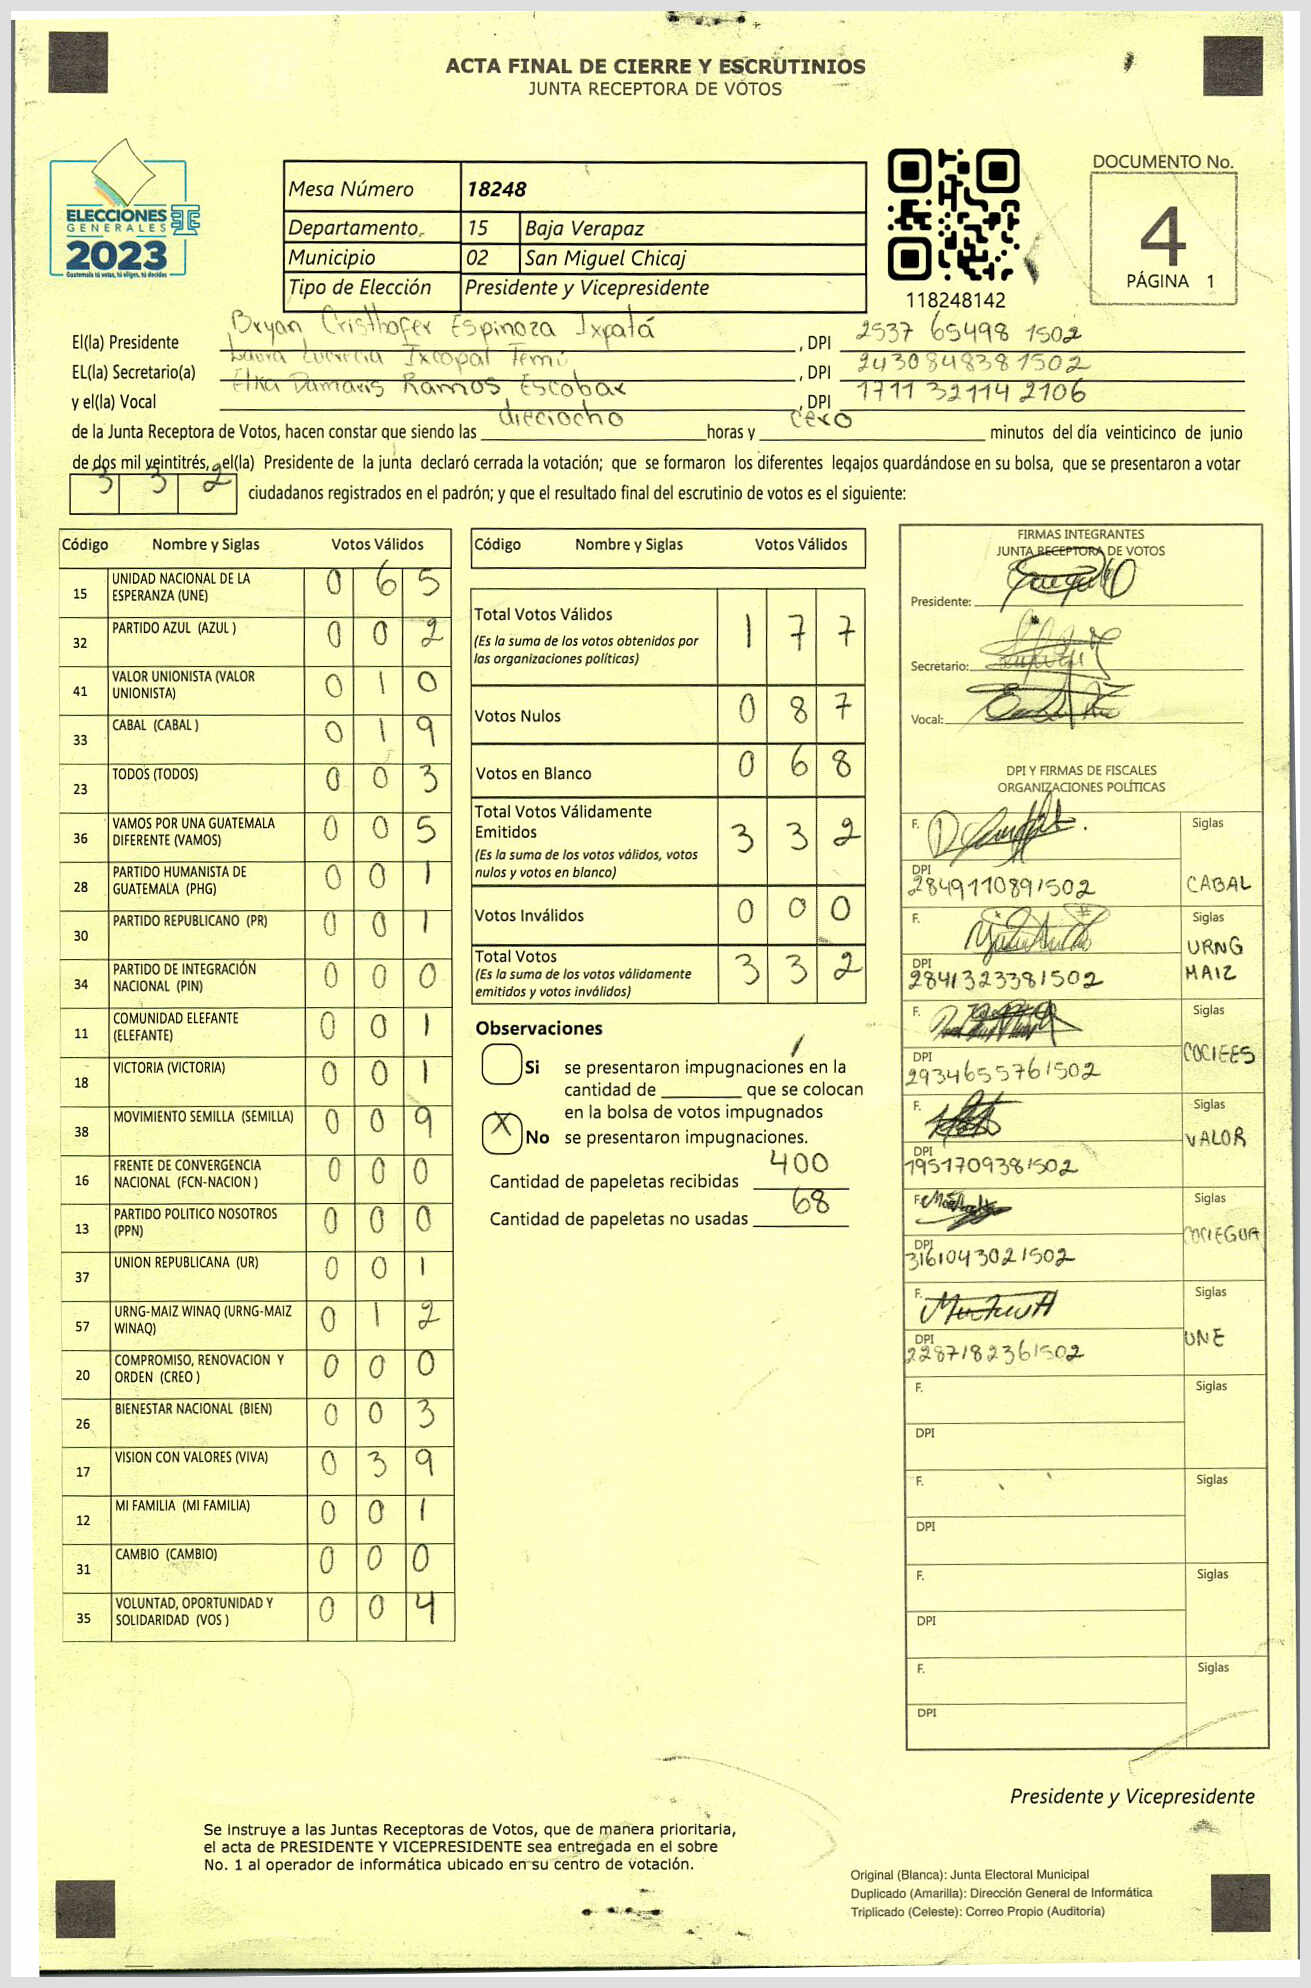 ACTA FINAL DE CIERRE Y ESCRUTINIOS
JUNTA RECEPTORA DE VOTOS
ELECCIONES
GENERALES
2023
Guatemala tú votas, tú eliges, tú decides
Mesa Número 18248
Departamento 15 Baja Verapaz
Municipio 02 San Miguel Chicaj
Tipo de Elección Presidente y Vicepresidente
118248142
DOCUMENTO No.
4
PÁGINA 1
El(la) Presidente Bryan Cristhofer Espinoza Ixpatá , DPI 2537 65498 1502
EL(la) Secretario(a) Laura Lucrecia Ixcopal Temú , DPI 243084838 1502
y el(la) Vocal Elka Damaris Ramos Escobar , DPI 1711 32114 2106
de la Junta Receptora de Votos, hacen constar que siendo las dieciocho horas y cero minutos del día veinticinco de junio
de dos mil veintitrés, el(la) Presidente de la junta declaró cerrada la votación; que se formaron los diferentes legajos guardándose en su bolsa, que se presentaron a votar
332 ciudadanos registrados en el padrón; y que el resultado final del escrutinio de votos es el siguiente:
Código Nombre y Siglas Votos Válidos
15 UNIDAD NACIONAL DE LA ESPERANZA (UNE) 0 6 5
32 PARTIDO AZUL (AZUL ) 0 0 2
41 VALOR UNIONISTA (VALOR UNIONISTA) 0 1 0
33 CABAL (CABAL ) 0 1 9
23 TODOS (TODOS) 0 0 3
36 VAMOS POR UNA GUATEMALA DIFERENTE (VAMOS) 0 0 5
28 PARTIDO HUMANISTA DE GUATEMALA (PHG) 0 0 1
30 PARTIDO REPUBLICANO (PR) 0 0 1
34 PARTIDO DE INTEGRACIÓN NACIONAL (PIN) 0 0 0
11 COMUNIDAD ELEFANTE (ELEFANTE) 0 0 1
18 VICTORIA (VICTORIA) 0 0 1
38 MOVIMIENTO SEMILLA (SEMILLA) 0 0 9
16 FRENTE DE CONVERGENCIA NACIONAL (FCN-NACION ) 0 0 0
13 PARTIDO POLITICO NOSOTROS (PPN) 0 0 0
37 UNION REPUBLICANA (UR) 0 0 1
57 URNG-MAIZ WINAQ (URNG-MAIZ WINAQ) 0 1 2
20 COMPROMISO, RENOVACION Y ORDEN (CREO ) 0 0 0
26 BIENESTAR NACIONAL (BIEN) 0 0 3
17 VISION CON VALORES (VIVA) 0 3 9
12 MI FAMILIA (MI FAMILIA) 0 0 1
31 CAMBIO (CAMBIO) 0 0 0
35 VOLUNTAD, OPORTUNIDAD Y SOLIDARIDAD (VOS ) 0 0 4
Código Nombre y Siglas Votos Válidos
Total Votos Válidos 1 7 7
(Es la suma de los votos obtenidos por
las organizaciones políticas)
Votos Nulos 0 8 7
Votos en Blanco 0 6 8
Total Votos Válidamente
Emitidos 3 3 2
(Es la suma de los votos válidos, votos
nulos y votos en blanco)
Votos Inválidos 0 0 0
Total Votos 3 3 2
(Es la suma de los votos válidamente
emitidos y votos inválidos)
Observaciones
Si se presentaron impugnaciones en la
cantidad de que se colocan
en la bolsa de votos impugnados
X No se presentaron impugnaciones.
Cantidad de papeletas recibidas 400
Cantidad de papeletas no usadas 68
FIRMAS INTEGRANTES
JUNTA RECEPTORA DE VOTOS
Presidente:
Secretario:
Vocal:
DPI Y FIRMAS DE FISCALES
ORGANIZACIONES POLÍTICAS
F. Siglas
DPI
2849110891502 CABAL
F. Siglas
URNG
DPI
2841323381502 MAIZ
F. Siglas
DPI COCIEES
2934655761502
F. Siglas
VALOR
DPI
1951709381502
F. Siglas
COCIEGUA
DPI
3161043021502
F. Siglas
DPI UNE
2287182361502
F. Siglas
DPI
F. Siglas
DPI
F. Siglas
DPI
F. Siglas
DPI
Presidente y Vicepresidente
Se instruye a las Juntas Receptoras de Votos, que de manera prioritaria,
el acta de PRESIDENTE Y VICEPRESIDENTE sea entregada en el sobre
No. 1 al operador de informática ubicado en su centro de votación.
Original (Blanca): Junta Electoral Municipal
Duplicado (Amarilla): Dirección General de Informática
Triplicado (Celeste): Correo Propio (Auditoría)